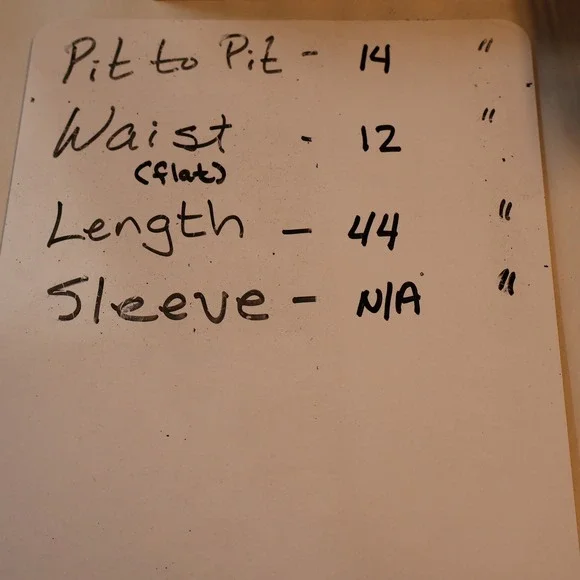 Pit to Pit - 14 "
Waist - 12 "
(flat)
Length - 44 "
Sleeve - N/A "